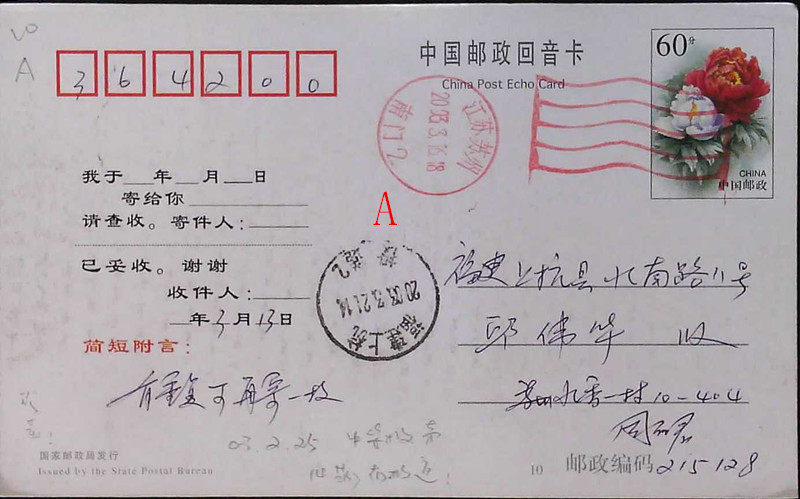 中国邮政回音卡
China Post Echo Card
60分
CHINA
中国邮政
364200
A
江苏苏州
2003.3.15.18
南门2
我于___年___月___日
寄给你
请查收。寄件人：
已妥收。谢谢
收件人：
年3月13日
简短附言：
可再寄一枚
A
2003.3.21.14
福建上杭
福建上杭县北南路11号
邱伟华 收
苏州九香一村10-404
邮政编码215128
03.2.25
国家邮政局发行
Issued by the State Postal Bureau
10